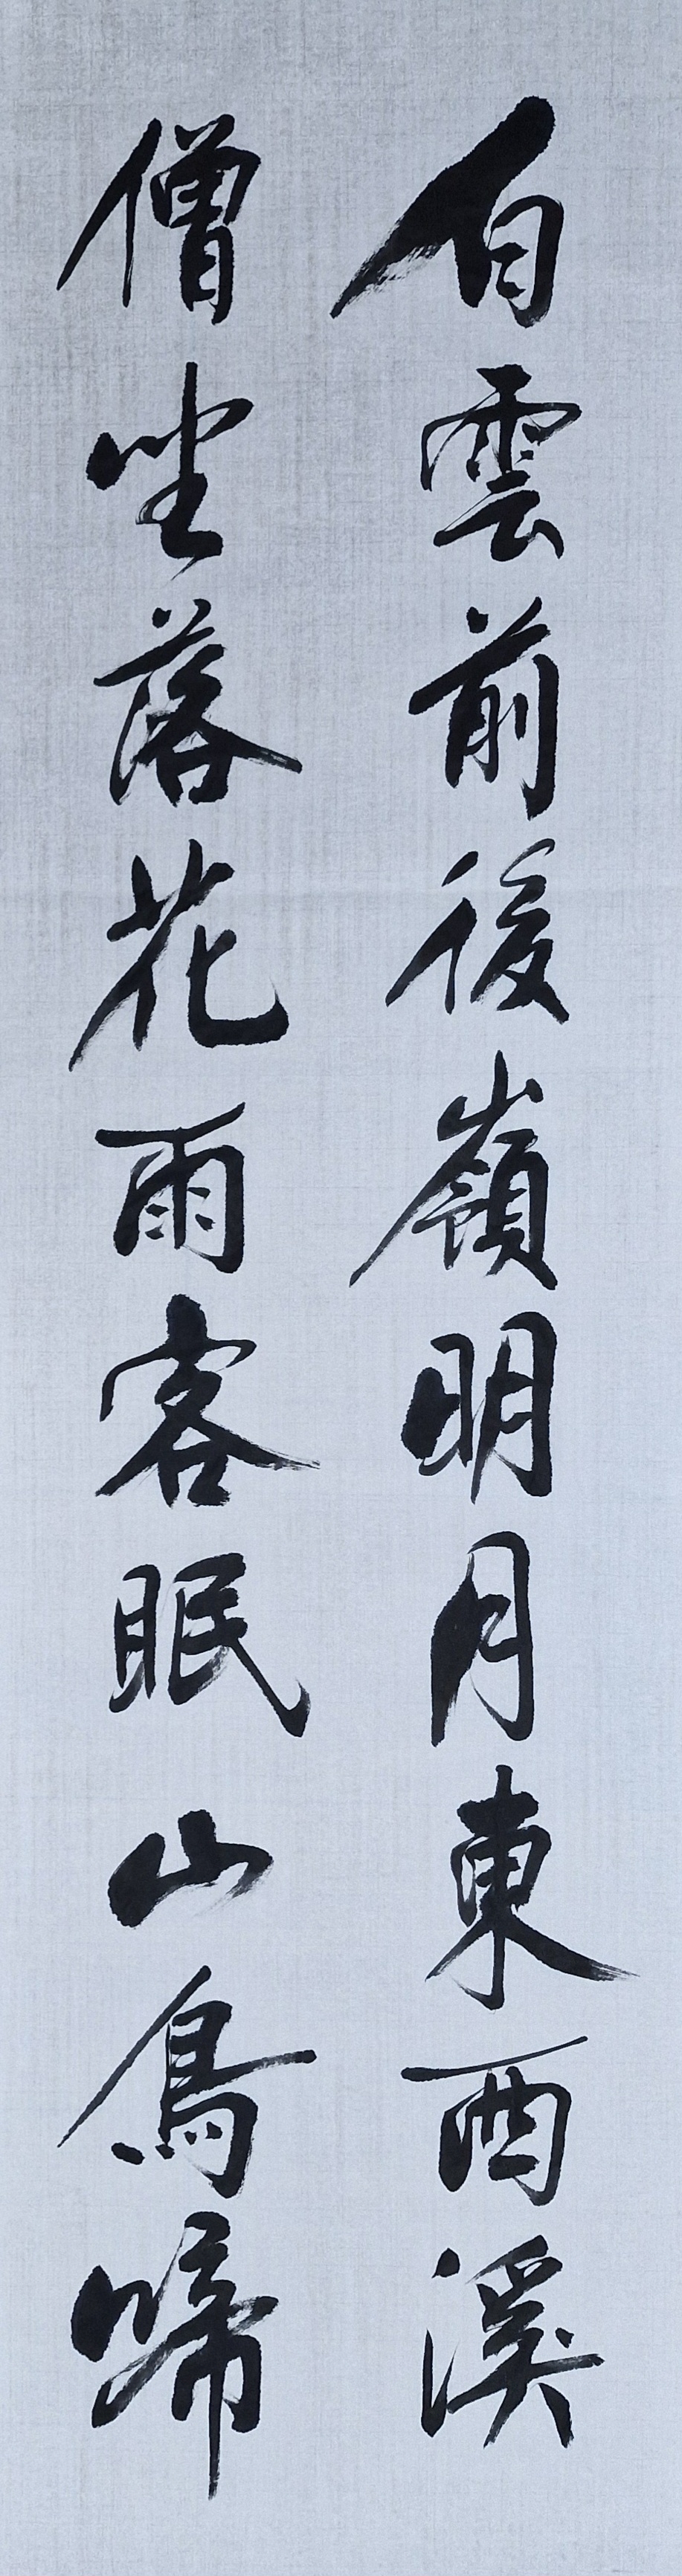 白雲前後嶺明月東西溪
僧坐落花雨客眠山鳥啼